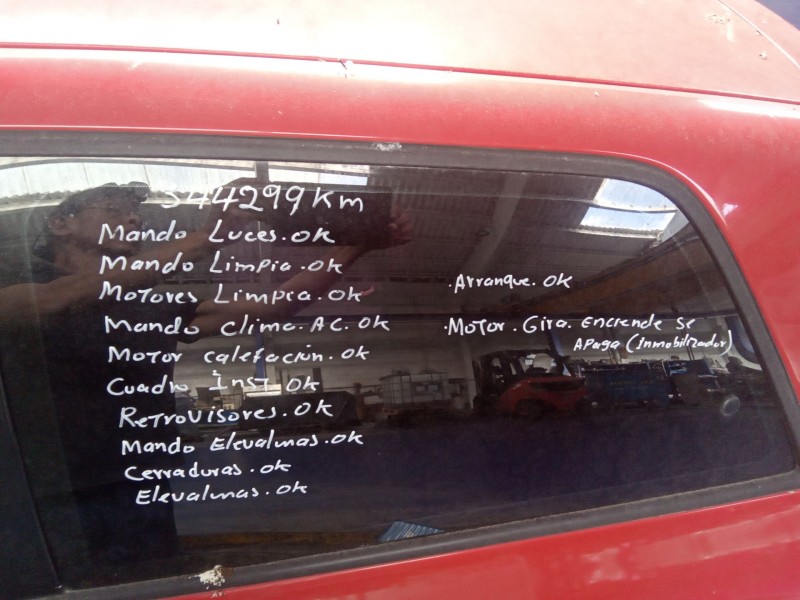 344299 Km
Mando Luces. OK
Mando Limpia. OK
Motores Limpia. OK
Mando Clima. AC. OK
Motor Calefación. OK
Cuadro Inst OK
Retrovisores. OK
Mando Elevalunas. OK
Cerraduras. OK
Elevalunas. OK
.Arranque. OK
.Motor. Gira. Enciende se
Apaga (inmobilizador)